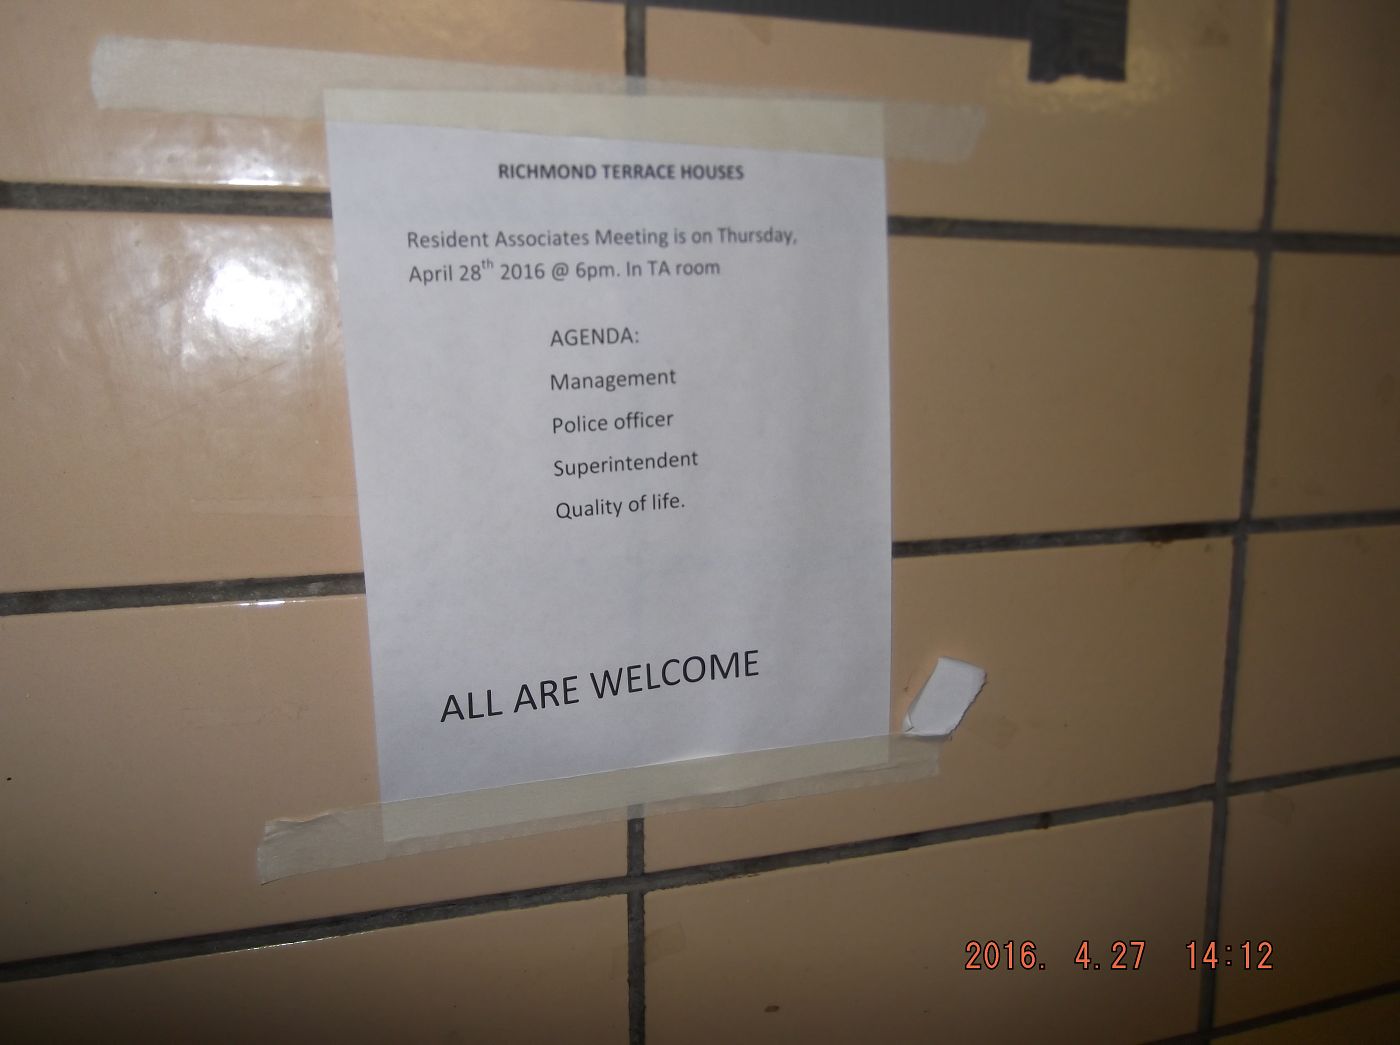 RICHMOND TERRACE HOUSES
Resident Associates Meeting is on Thursday,
April 28th 2016 @ 6pm. In TA room
AGENDA:
Management
Police officer
Superintendent
Quality of life.
ALL ARE WELCOME
2016. 4.27 14:12